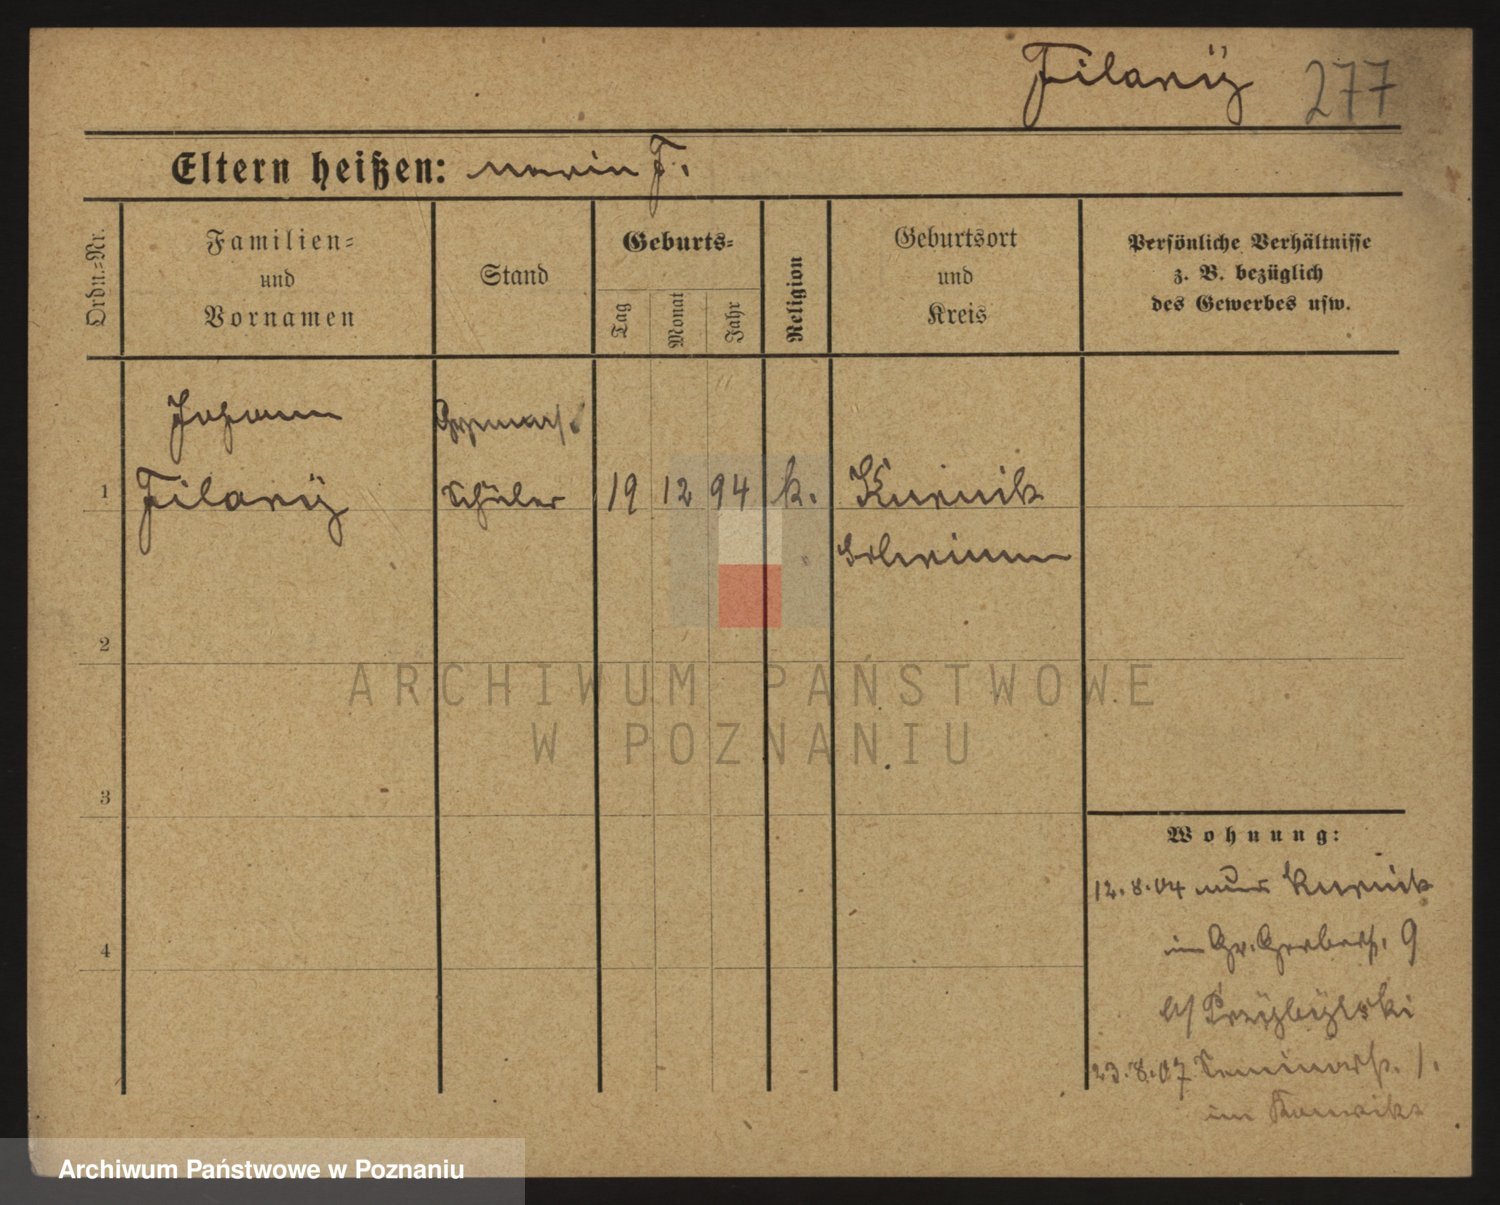 Filarÿ 277
Eltern heißen: Maria F.
Ordn.-Nr.
Familien-
und
Vornamen
Stand
Geburts-
Tag
Monat
Jahr
Religion
Geburtsort
und
Kreis
Persönliche Verhältnisse
z. B. bezüglich
des Gewerbes usw.
Johann Gymnas.
1 Filarÿ Schüler 19 12 94 k. Kurnik
2
3
4
Wohnung:
12.8.04 Kurnik
Gr. Gerberst. 9
b/ Przÿbÿlski
23.8.07 Seminarst. 1.
im Konvikt
ARCHIWUM PAŃSTWOWE
W POZNANIU
Archiwum Państwowe w Poznaniu